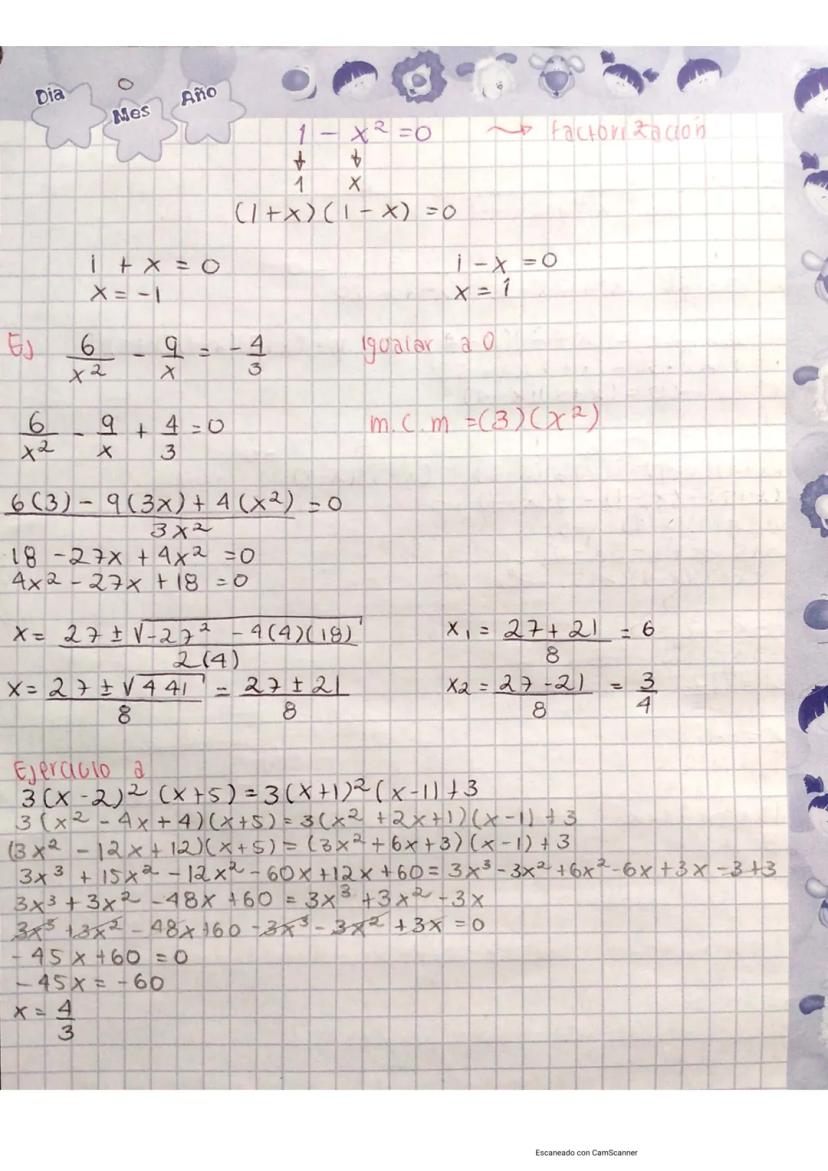 Dia Mes Año
1 - x² = 0 ⤳ Factorización
↓ ↓
1 x
(1+x)(1-x) = 0
1 + x = 0 1 - x = 0
x = -1 x = 1
Ej 6/x² - 9/x = -4/3 Igualar a 0
6/x² - 9/x + 4/3 = 0 m.c.m = (3)(x²)
6(3) - 9(3x) + 4(x²) / 3x² = 0
18 - 27x + 4x² = 0
4x² - 27x + 18 = 0
x = 27 ± √-27² - 4(4)(18) / 2(4) x₁ = 27 + 21 / 8 = 6
x = 27 ± √441 / 8 = 27 ± 21 / 8 x2 = 27 - 21 / 8 = 3/4
Ejercicio 2
3(x-2)² (x+5) = 3(x+1)² (x-1) + 3
3(x² - 4x + 4)(x+5) = 3(x² + 2x + 1)(x-1) + 3
(3x² - 12x + 12)(x+5) = (3x² + 6x + 3)(x-1) + 3
3x³ + 15x² - 12x² - 60x + 12x + 60 = 3x³ - 3x² + 6x² - 6x + 3x - 3 + 3
3x³ + 3x² - 48x + 60 = 3x³ + 3x² - 3x
3x³ + 3x² - 48x + 60 - 3x³ - 3x² + 3x = 0
- 45x + 60 = 0
- 45x = -60
x = 4/3
Escaneado con CamScanner